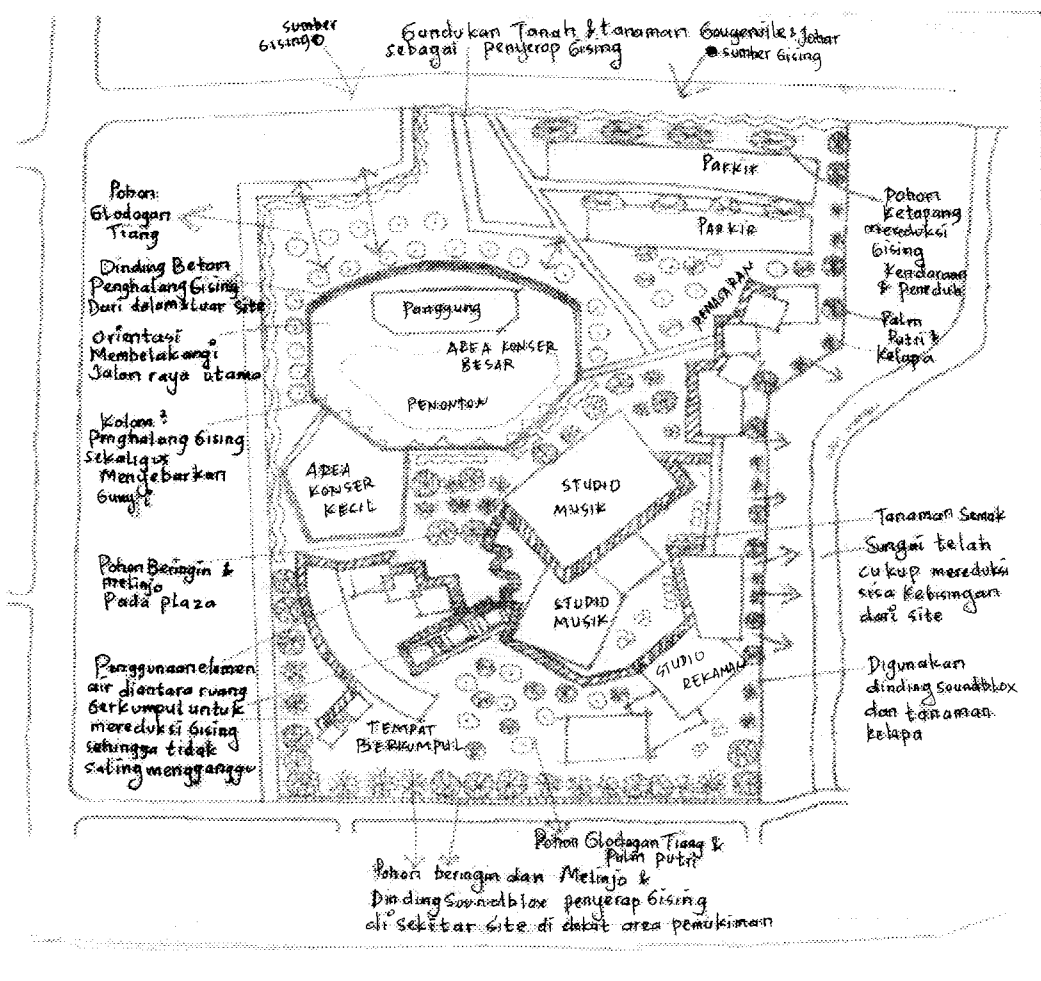 sumber
bising
Gundukan Tanah & tanaman Bougenville & Johar
sebagai penyerap bising
sumber bising
Parkir
Parkir
Pohon
Glodogan
Tiang
Dinding Beton
Penghalang bising
Dari dalam & luar site
Orientasi
Membelakangi
Jalan raya utama
Kolom²
Penghalang bising
sekaligus
Menyebarkan
Bunyi
Pohon Beringin &
melinjo
Pada plaza
Penggunaan elemen
air diantara ruang
berkumpul untuk
mereduksi bising
sehingga tidak
saling mengganggu
Panggung
AREA KONSER
BESAR
PENONTON
AREA
KONSER
KECIL
STUDIO
MUSIK
STUDIO
MUSIK
STUDIO
REKAMAN
TEMPAT
BERKUMPUL
PEMASARAN
Pohon
Ketapang
mereduksi
bising
Kendaraan
& Peneduh
Palm
Putri &
Kelapa
Tanaman Semak
Sungai telah
cukup mereduksi
sisa kebisingan
dari site
Digunakan
dinding soundblox
dan tanaman
kelapa
Pohon Glodogan Tiang &
Palm putri
Pohon beringin dan Melinjo &
Dinding Soundblox penyerap bising
di sekitar site di dekat area pemukiman